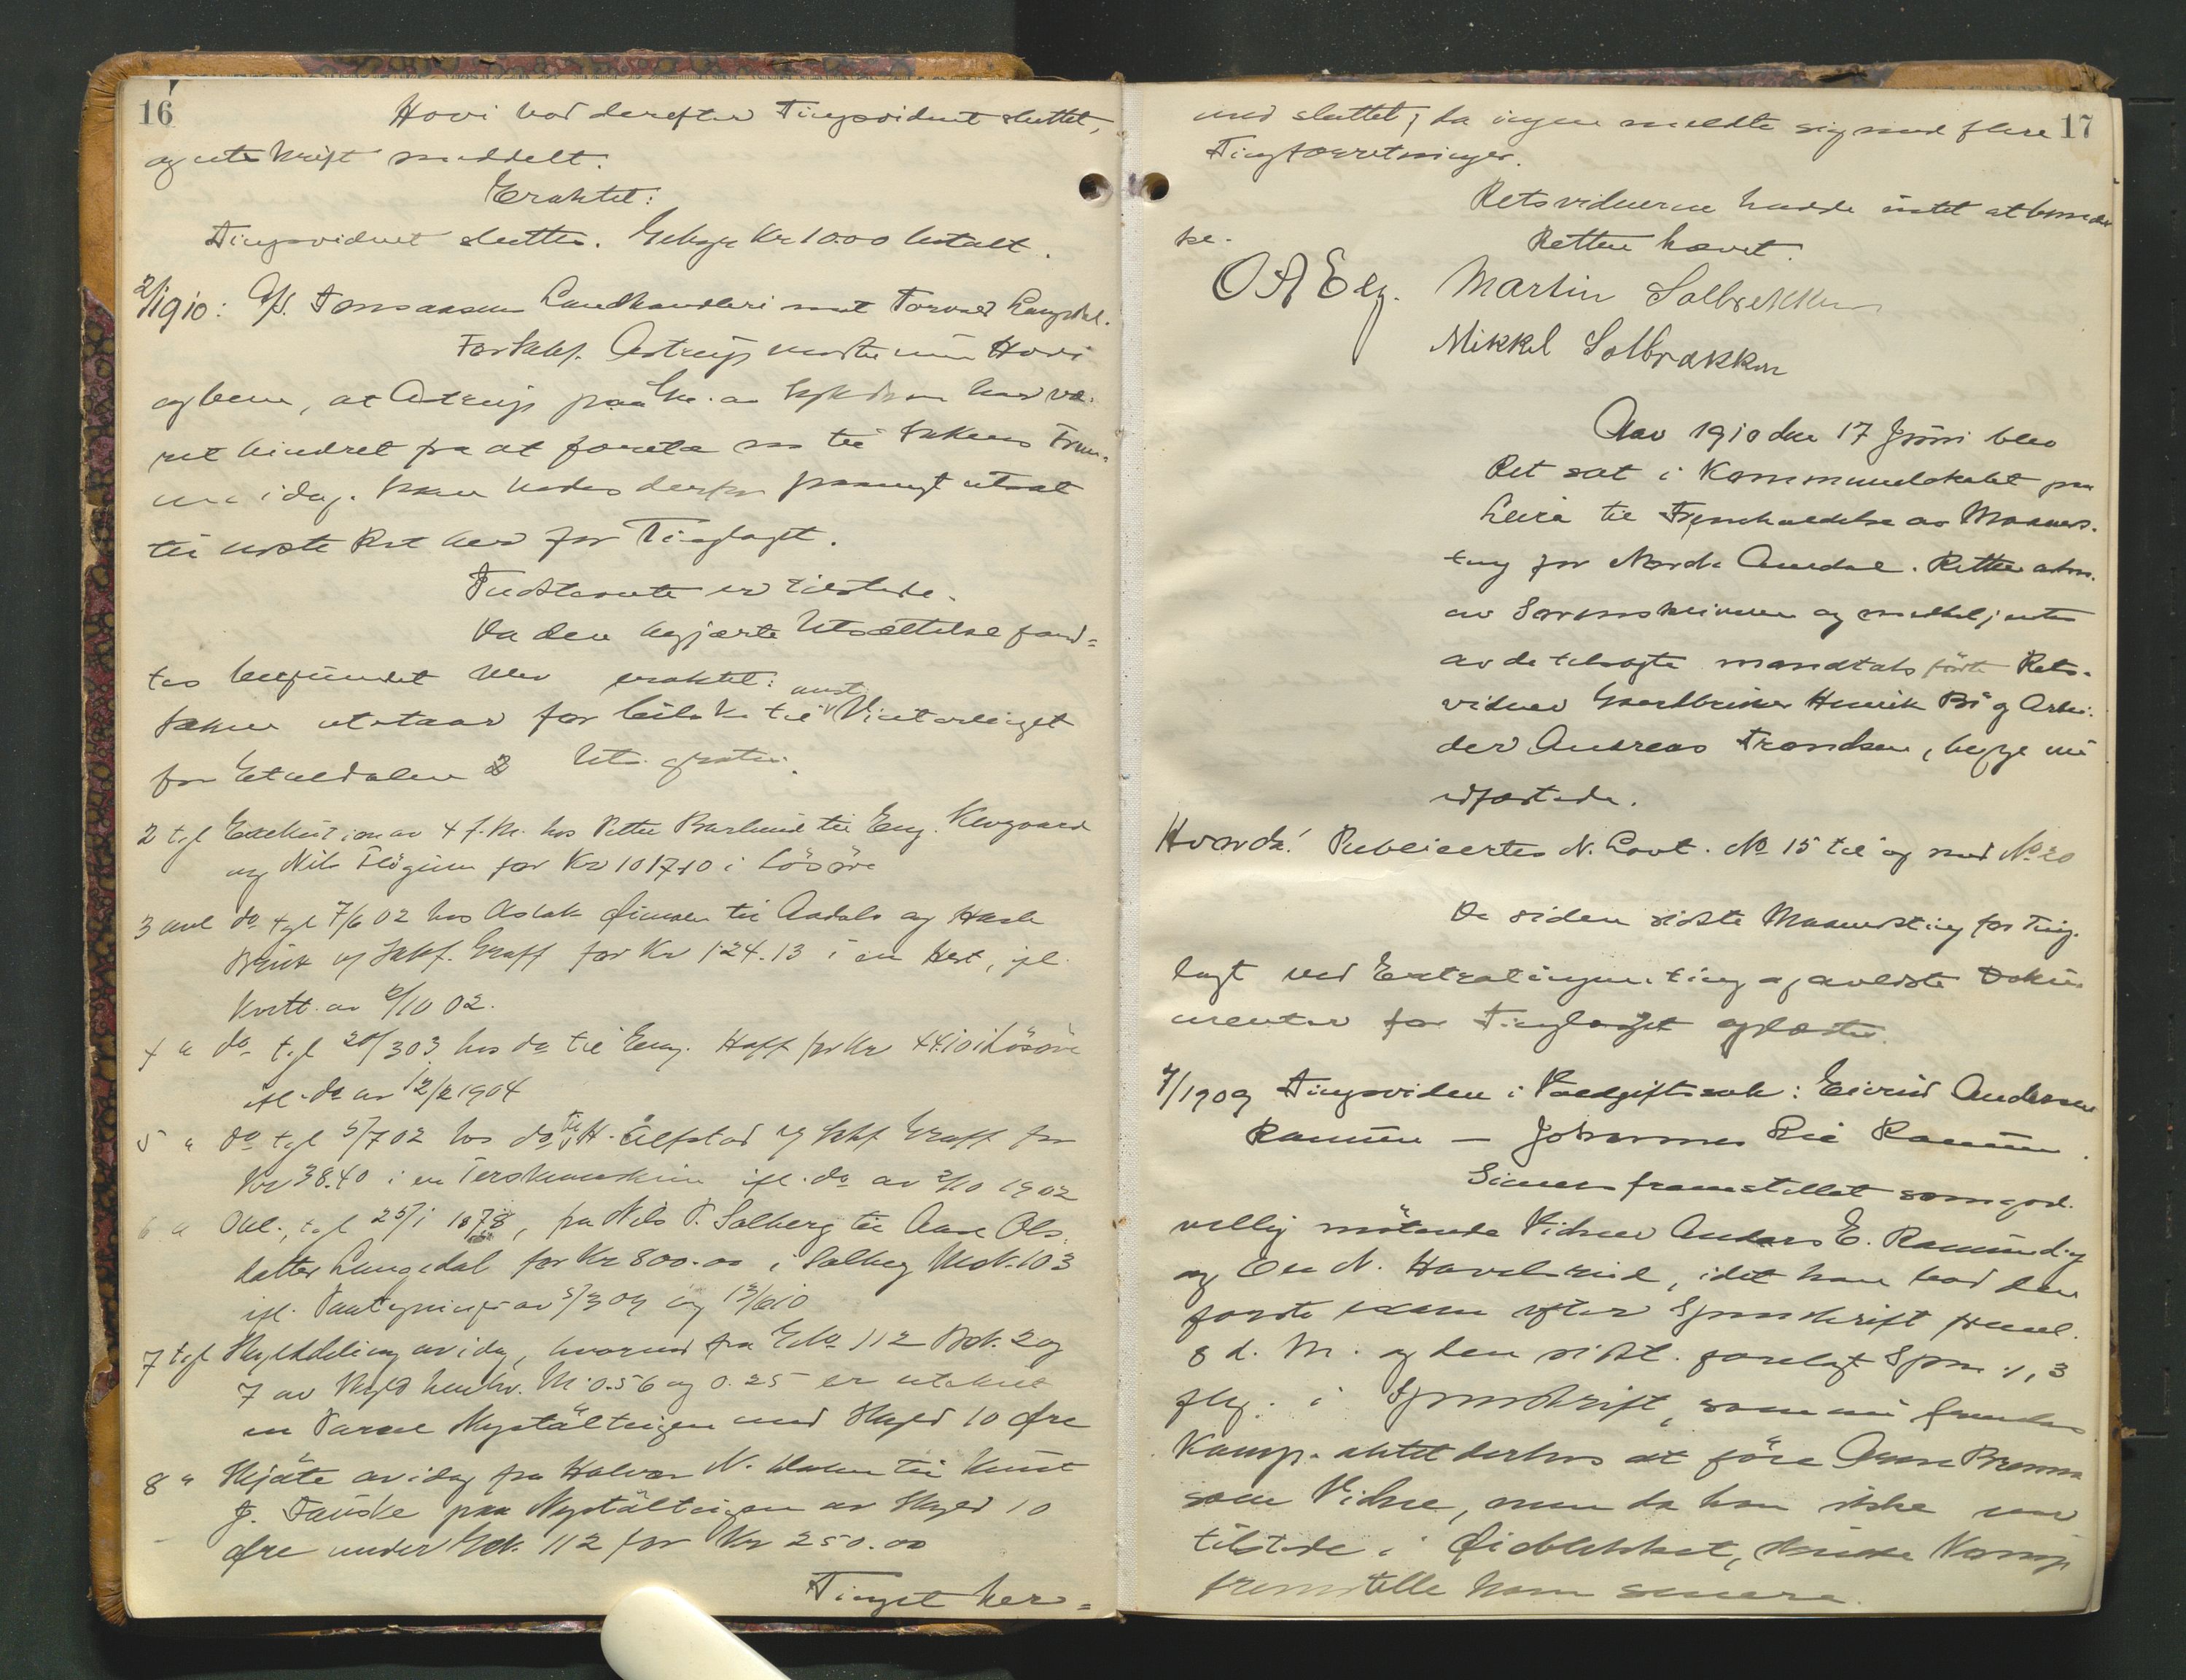 16
Hovi bad derefter Tingsvidnet sluttet,
og utskrift meddelt.
Eraktet:
Tingsvidnet sluttes. Gebyr Kr 10.00 betalt.
2/1910: A/S. Tonsaasen Landhandleri mot Torvald Langedal.
For Sakf. Astrup møtte nu Hovi
og bem, at Astrup paa Gr. av Sykdom har væ-
ret hindret fra at foreta no til Sakens Frem-
me idag. Saken bedes derfor paanyt utsat
til næste Ret her for Tinglaget.
Indstevnte er tilstede.
Da den begjærte Utsættelse fand-
tes begrundet blev eraktet:
anst
Saken utstaar for Leilk til Vintertinget
for Etnedalen Uts. gratis.
2 tgl Exekution av 4 f. M. hos Petter Barlund til Eng. Klevgaard
og Nils Fløgum for Kr 1017.10 i Løsøre
3 avl do tgl 7/6 02 hos Aslak til Aadals og Hasle
Bruk v/ Sakf. Graff for Kr 124.13 i en Hest, ifl.
Kvitt. av 2/10 02.
4 " do tgl 20/3 03 hos do til Eng. Hoff for Kr 44.10 i Løsøre
ifl. do av 12/2 1904
5 " do tgl 5/7 02 hos do til H. Ulfstad v/ Sakf Graff for
Kr 38.40 i en Terskemaskin ifl. do av 2/10 1902
6 " Obl., tgl 25/1 1878, fra Nils P. Solberg til Aase Ols-
datter Langedal for Kr 800.00 i Solberg Mno. 103
ifl. Paategninger av 5/3 09 og 13/6 10
7 tgl Skylddeling av idag, hvorved fra Gno 112 Bno. 2 og
7 av Skyld henhv. M 0.56 og 0.25 er utskilt
en Parcel Nystølteigen med Skyld 10 Øre
8 " Skjøte av idag fra Halvor N. til Knut
J. Fauske paa Nystølteigen av Skyld 10
Øre under Gno. 112 for Kr 250.00
Tinget her-
17
med sluttet, da ingen meldte sig med flere
Tingforretninger.
Retsvidnerne hadde intet at bemær-
ke.
Retten hævet.
O A Elg. Martin Solbrekken
Mikkel Solbrækken
Aar 1910 den 17 Juni blev
Ret sat i Kommunelokalet paa
Leira til Fremholdelse av Maaneds-
ting for Nordre Aurdal. Retten adm.
av Sorenskriveren og medbetjentes
av de tilsagte mandtalsførte Rets-
vidner Gaardbruker Henrik Bø og Arbei-
der Andreas Trondsen, begge nu
edfæstede.
Hvorda! Publicertes N. Lovt. No 15 til og med No 20
De siden sidste Maanedsting for Ting-
laget ved Extratingene ting ## avlæste Doku-
menter for Tinglaget oplæstes.
7/1909 Tingsvidne i Voldgiftssak: Eivind Andersen
Ranum — Johannes Lie Ranum.
Simers fremstillet som god-
villig møtende Vidner Anders E. Ranum
og Ole N. Havelsrud, idet han bad den
første exam efter Spmskrift freml.
8 d. M. og den sidst. forelagt Spm. 1, 3
flg. i Spmskrift, som nu fremla
Komp. agtet derhos at føre Arne Bromm
som Vidne, men da han ikke var
tilstede i Øieblikket, skulde Komp
fremstille ham senere.